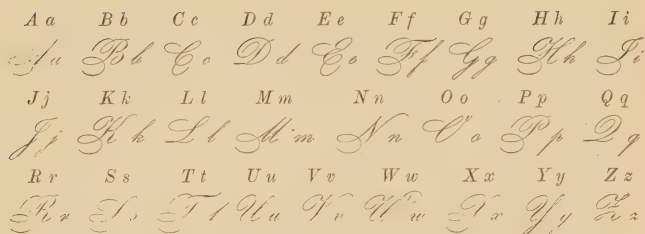 A a B b C c D d E e F f G g H h I i
A a B b C c D d E e F f G g H h I i
J j K k L l M m N n O o P p Q q
J j K k L l M m N n O o P p Q q
R r S s T t U u V v W w X x Y y Z z
R r S s T t U u V v W w X x Y y Z z